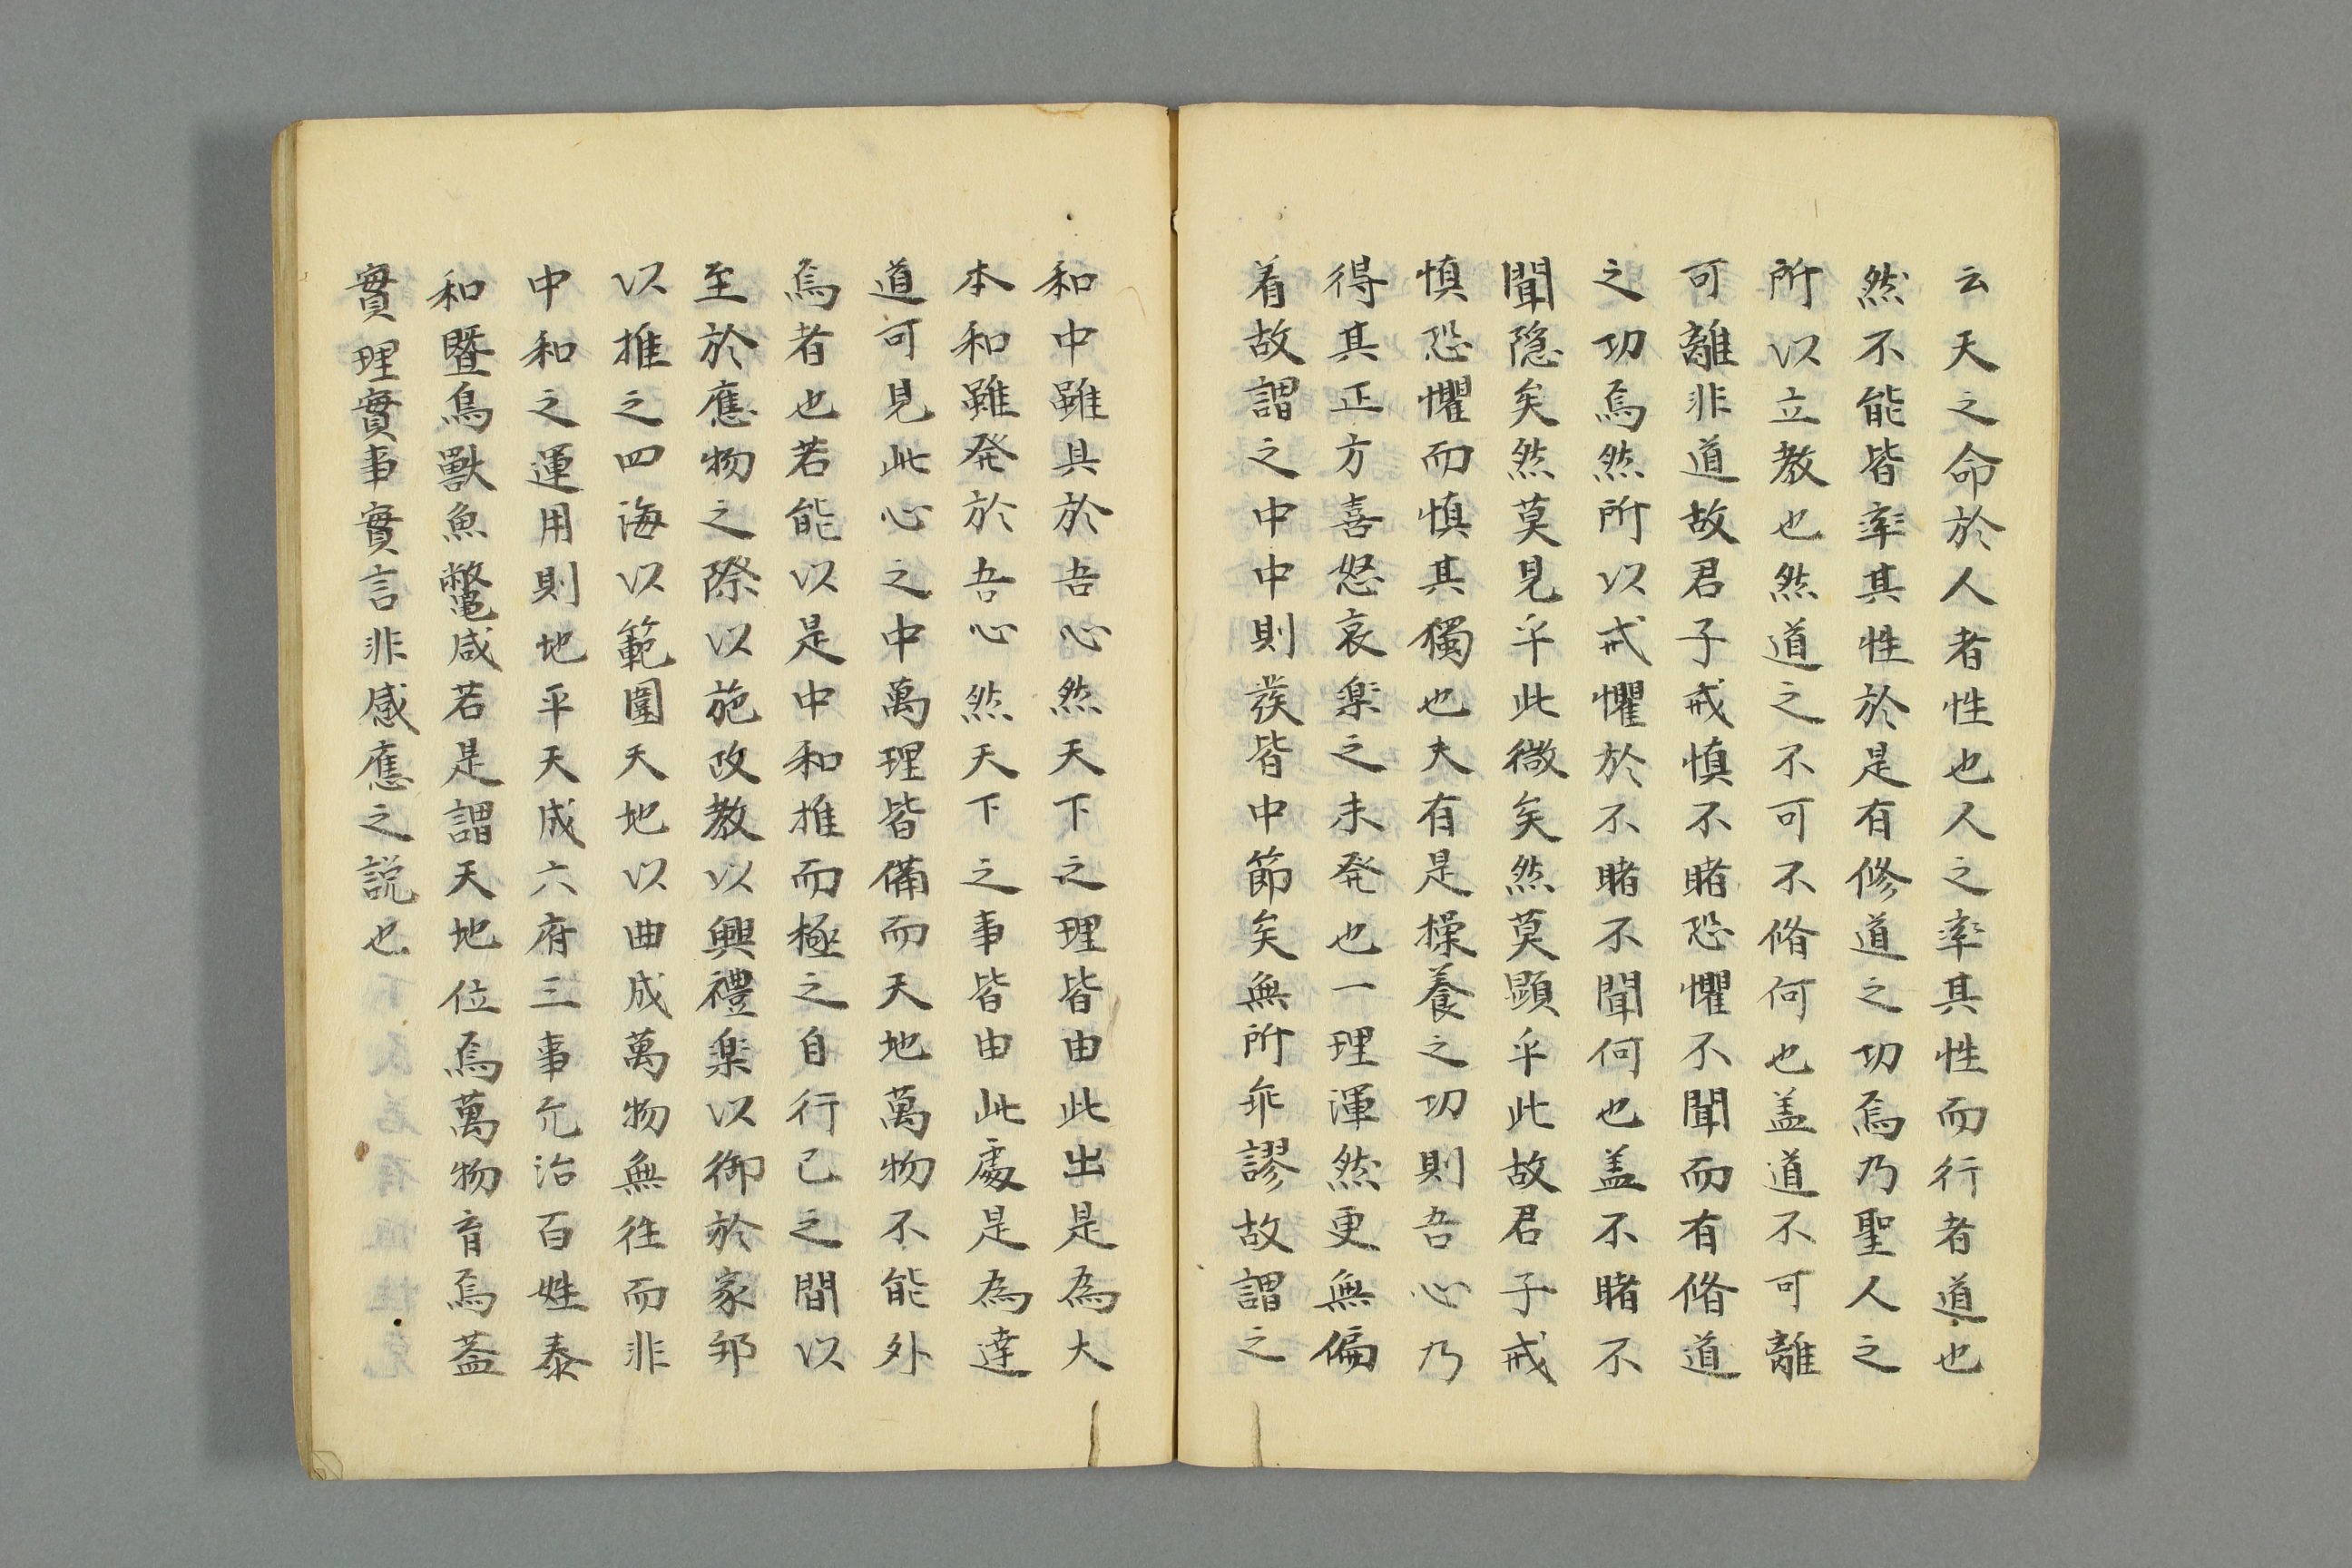 云天之命於人者性也人之率其性而行者道也
然不能皆率其性於是有修道之功焉乃聖人之
所以立教也然道之不可不脩何也盖道不可離
可離非道故君子戒慎不睹恐懼不聞而有脩道
之功焉然所以戒懼於不睹不聞何也盖不睹不
聞隐矣然莫見乎此微矣然莫顕乎此故君子戒
慎恐懼而慎其獨也夫有是操養之功則吾心乃
得其正方喜怒哀楽之未発也一理渾然更無偏
着故謂之中中則発皆中節矣無所乖謬故謂之
和中雖具於吾心然天下之理皆由此出是為大
本和雖発於吾心然天下之事皆由此處是為達
道可見此心之中萬理皆備而天地萬物不能外
焉者也若能以是中和推而極之自行己之間以
至於應物之際以施政教以興禮楽以御於家邦
以推之四海以範圍天地以曲成萬物無往而非
中和之運用則地平天成六府三事允治百姓泰
和暨鳥獣魚鼈咸若是謂天地位焉萬物育焉蓋
實理實事實言非感應之説也